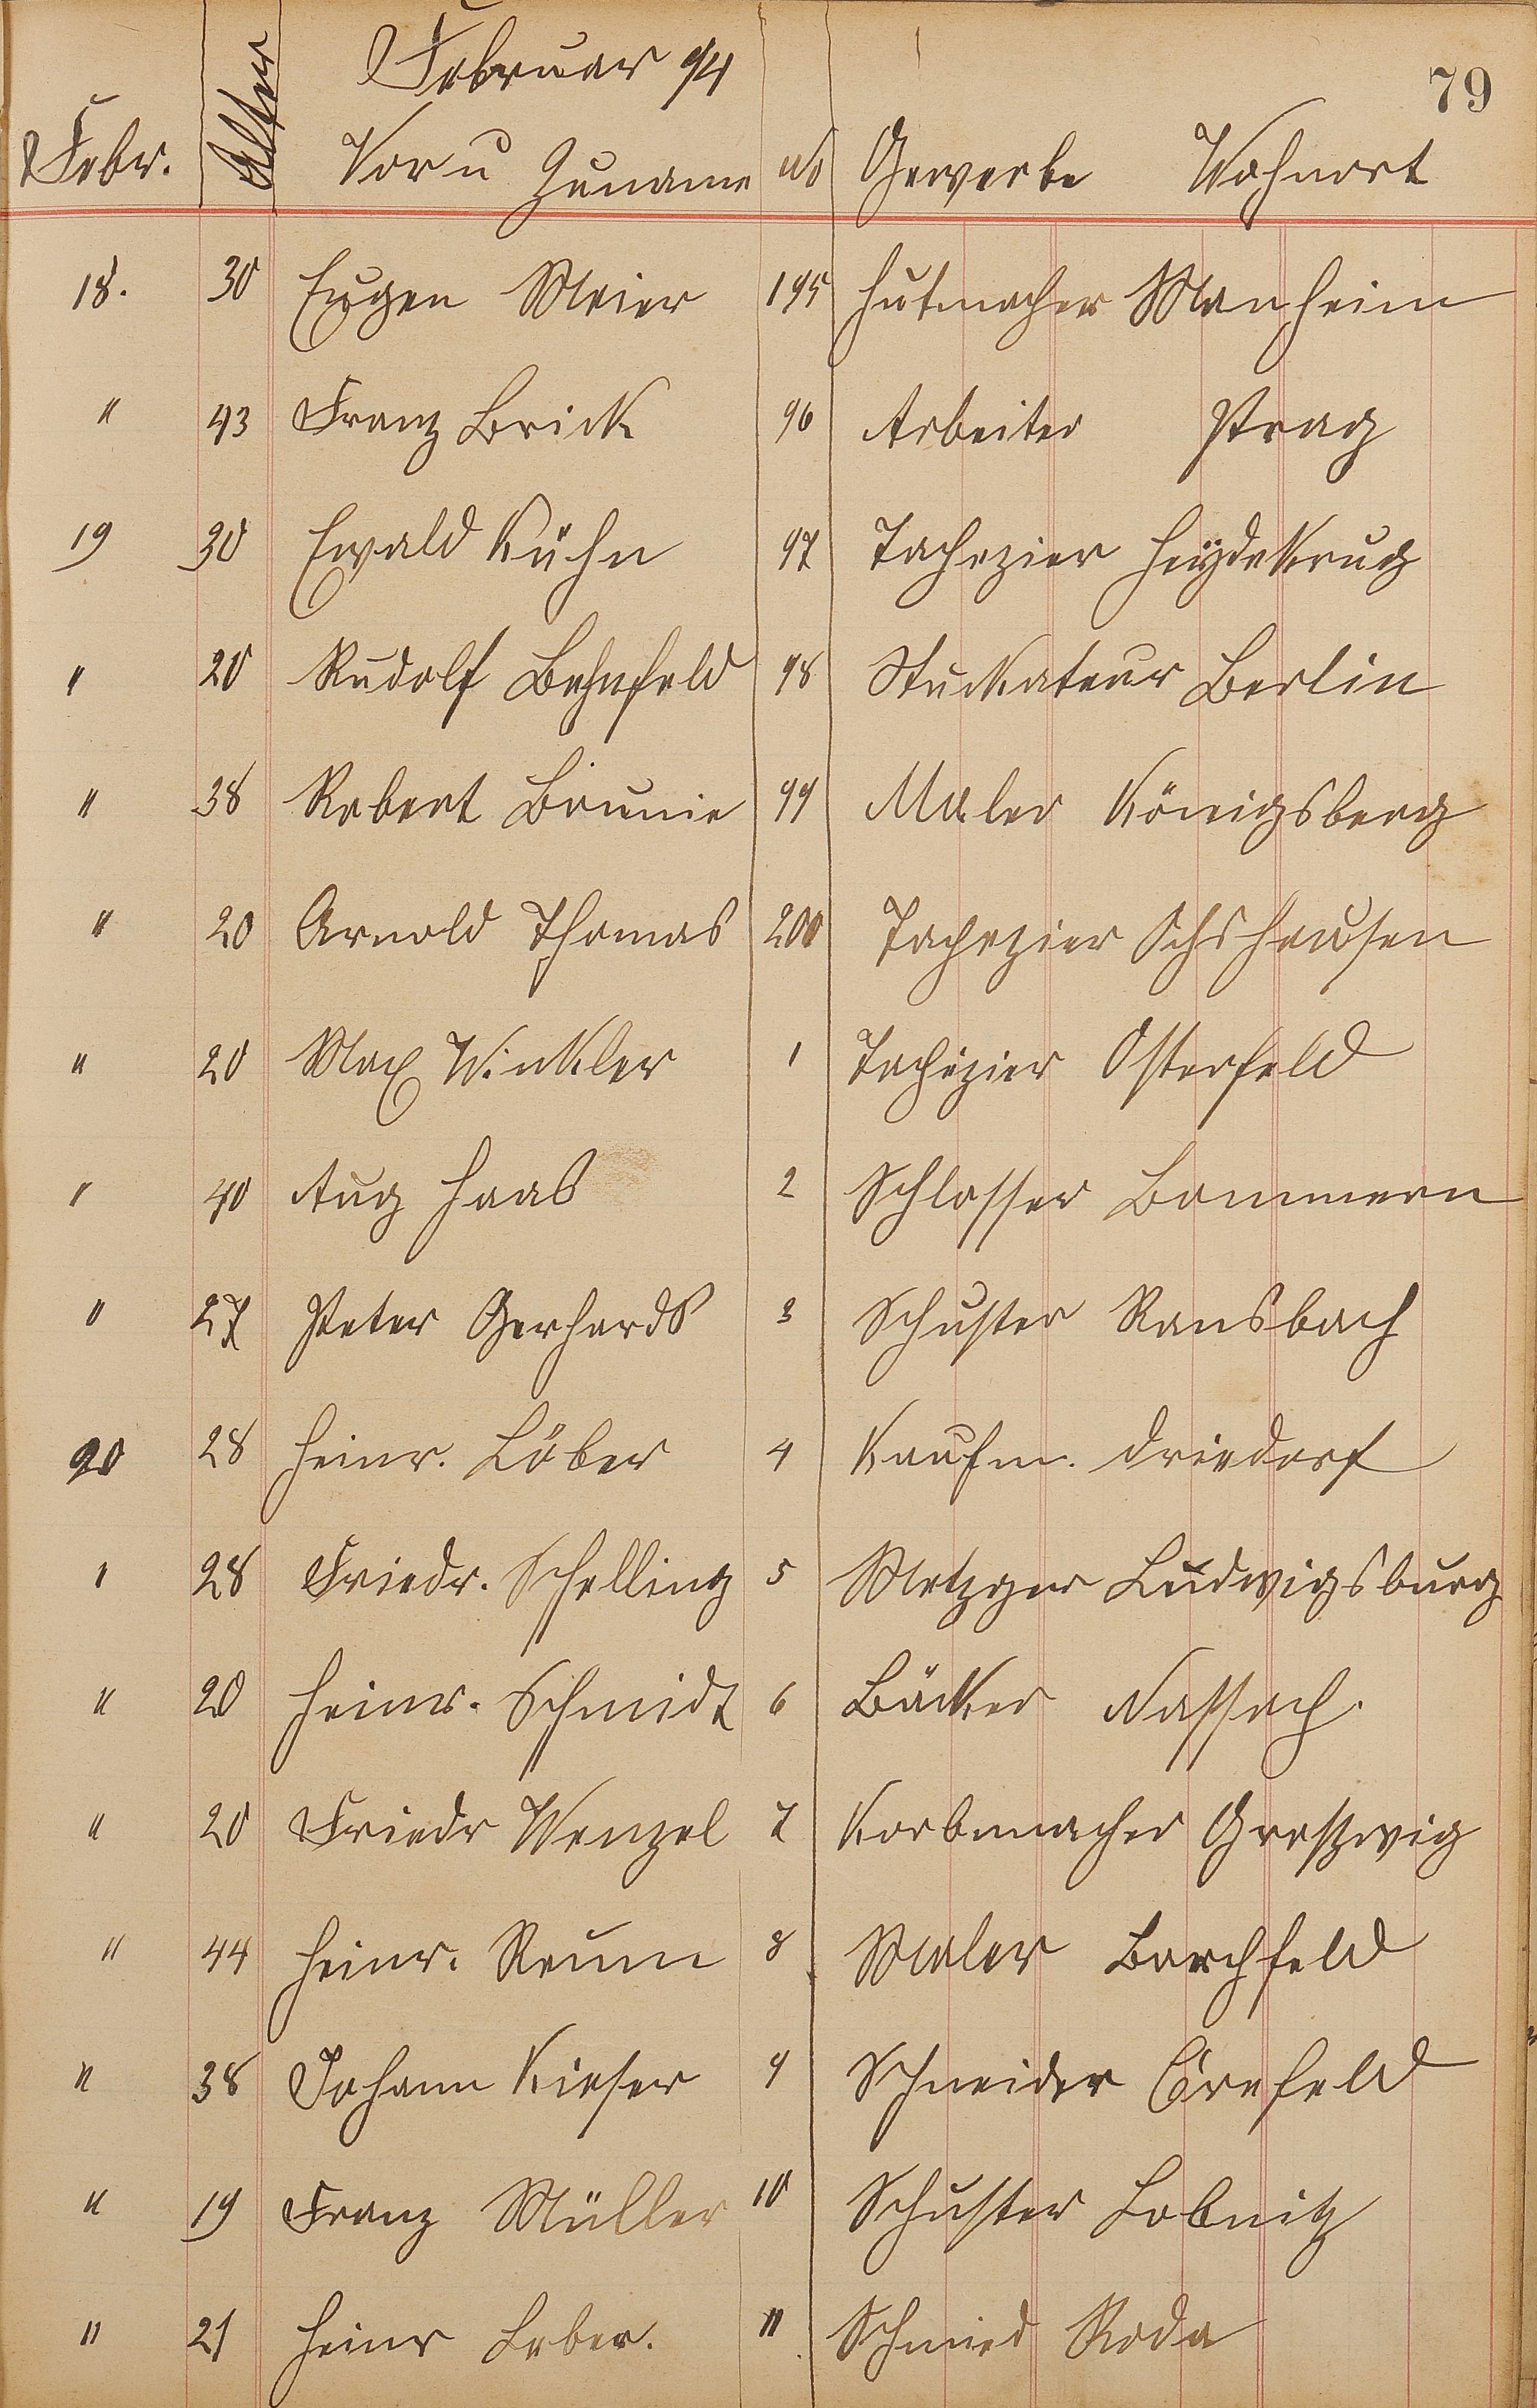 Februar 94
79
Febr. Alter Vor u Zuname No Gewerbe Wohnort
18. 30 Eugen Meier 195 Hutmacher Manheim
" 43 Franz Brick 96 Arbeiter Prag
19 30 Ewald Kühn 97 Tapezier Heydekrug
" 20 Rudolf Behnfeld 98 Stuckateur Berlin
" 38 Robert 99 Maler Königsberg
" 20 Arnold Thomas 200 Tapezier
" 20 Max Winkler 1 Tapezier Osterfeld
" 40 Aug Haas 2 Schlosser Bommern
" 27 Peter Gerhards 3 Schuster Ransbach
20 28 Heinr. Löber 4 Kaufm. Driedorf
" 28 Friedr. Schelling 5 Metzger Ludwigsburg
" 20 Heinr. Schmidt 6 Bäcker Nassach.
" 20 Friedr Wenzel 7 Korbmacher
" 44 Heinr. Reum 8 Maler Barchfeld
" 38 Johann Kieser 9 Schneider Crefeld
" 19 Franz Müller 10 Schuster Lobnitz
" 21 Heinr Leber. 11 Schmied Roda